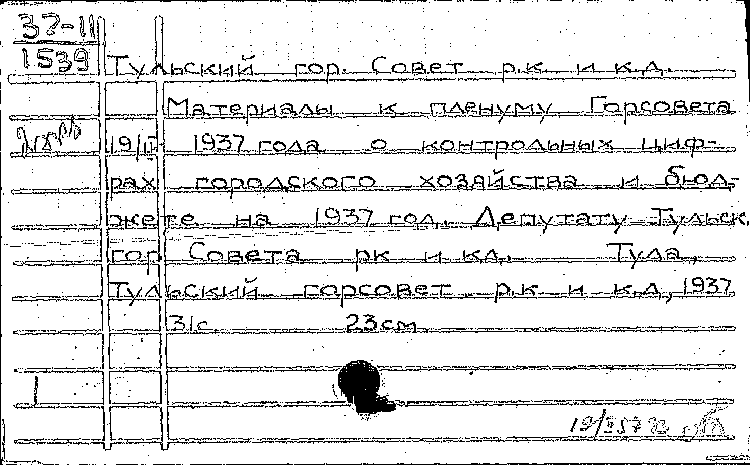 37-11
1539
Тульский гор. Совет р.к. и к.д.
Материалы к пленуму Горсовета
19/I 1937 года о контрольных циф-
рах городского хозяйства и бюд-
жете на 1937 год. Депутату Тульск.
гор. Совета рк и кд. Тула,
Тульский горсовет р.к. и к.д., 1937
31с 23см